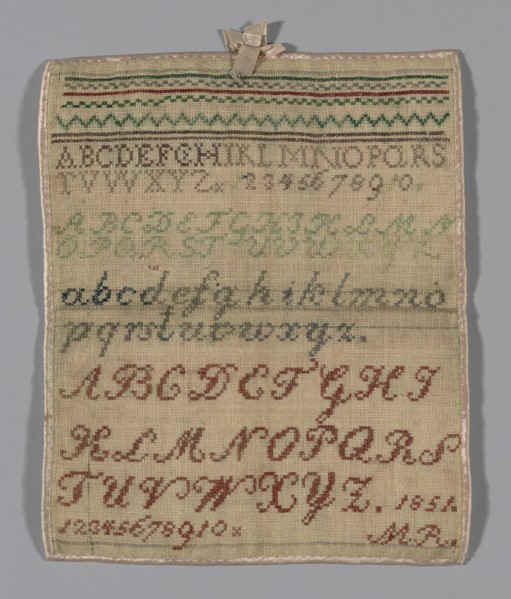 ABCDEFGHIKLMNOPQRS
TVWXYZx 1234567890.
ABCDEFGHIKLMN
OPQRSTUVWXYZ
abcdefghiklmno
pqrstuvwxyz.
ABCDEFGHI
KLMNOPQRS
TUVWXYZ. 1851.
12345678910x MR.